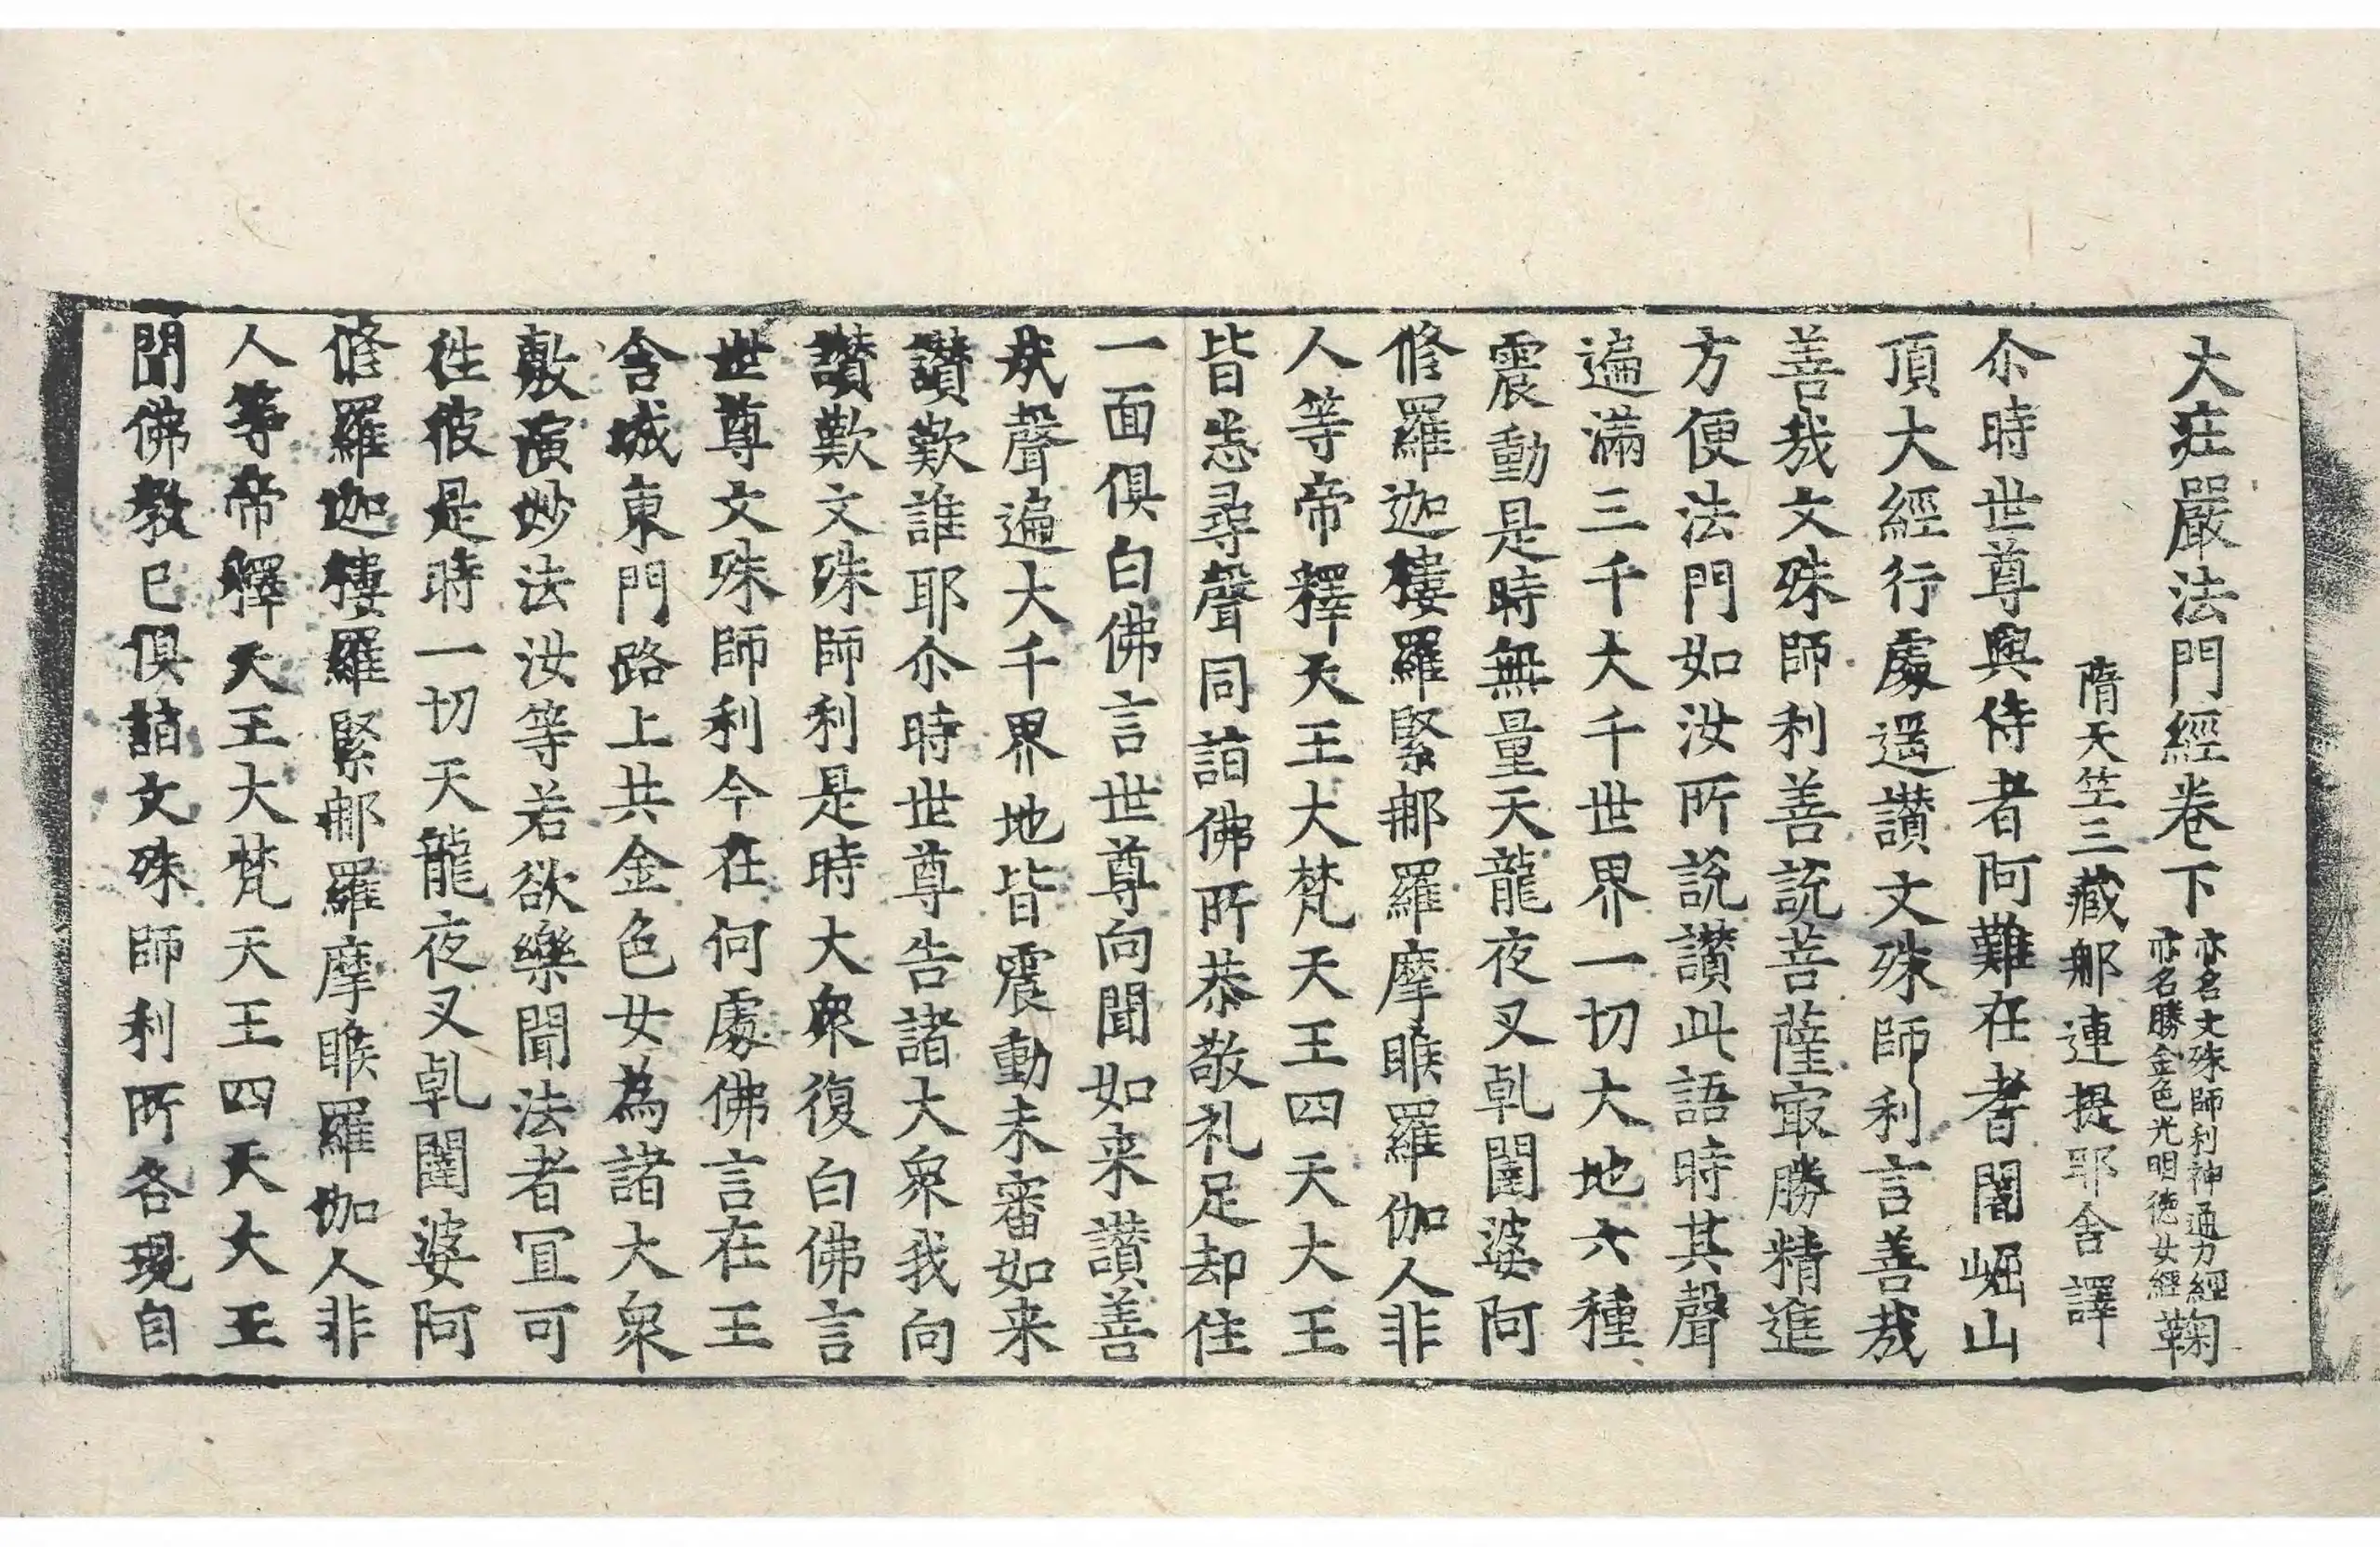 大莊嚴法門經卷下 亦名文殊師利神通力經 亦名勝金色光明德女經 鞠
隋天竺三藏那連提耶舍譯
尒時世尊與侍者阿難在耆闍崛山
頂大經行處遥讃文殊師利言善㢤
善㢤文殊師利善說菩薩㝡勝精進
方便法門如汝所說讃此語時其聲
遍滿三千大千世界一切大地六種
震動是時無量天龍夜叉乹闥婆阿
修羅迦樓羅緊那羅摩睺羅伽人非
人等帝釋天王大梵天王四天大王
皆悉尋聲同詣佛所恭敬礼足却住
一面俱白佛言世尊向聞如来讃善
㢤聲遍大千界地皆震動未審如来
讃歎誰耶尒時世尊告諸大衆我向
讃歎文殊師利是時大衆復白佛言
世尊文殊師利今在何處佛言在王
舍城東門路上共金色女為諸大衆
敷演妙法汝等若欲樂聞法者冝可
徃彼是時一切天龍夜叉乹闥婆阿
修羅迦樓羅緊那羅摩睺羅伽人非
人等帝釋天王大梵天王四天大王
聞佛教已俱詣文殊師利所各現自